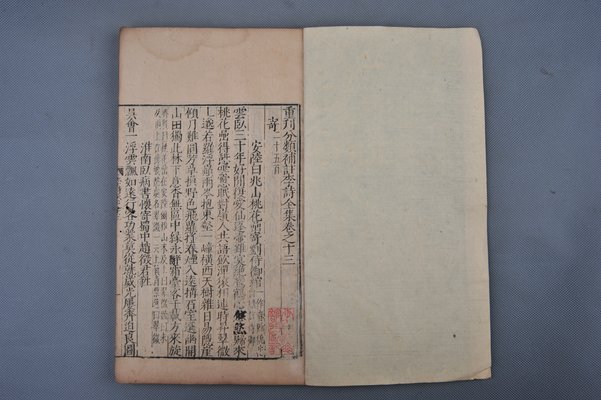 重刊分類補註李詩全集卷之十三
寄 二十五首
安陸白兆山桃花巖寄劉侍御綰
雲臥三十年好閑復愛仙蓬壺雖冥絕鸞鳳心悠然歸來
桃花巖得憩雲窓眠對嶺人共語飲潭猿相連時昇翠微
上邈若羅浮巔兩岑抱東壑一嶂橫西天樹雜日易隱崖
傾月難圓芳草換野色飛蘿搖春煙入遠構石室選幽開
山田獨此林下意杳無區中緣永辭霜臺客千載方來旋
淮南臥病書懷寄蜀中趙徵君蕤
吳會一浮雲飄如遠行客功業莫從就歲光屢奔迫良圖